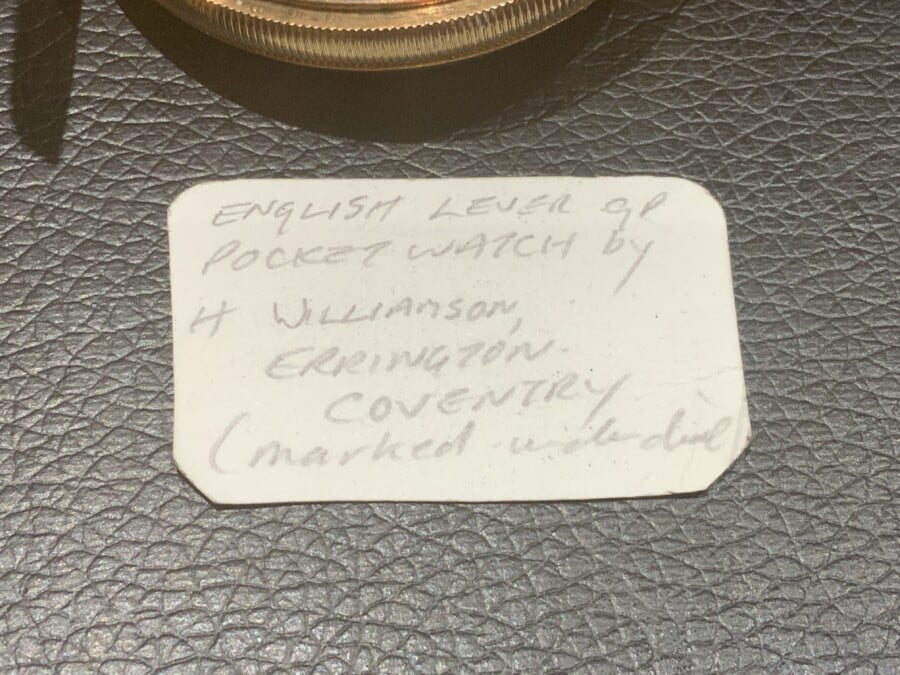 ENGLISH LEVER GP
POCKET WATCH by
H WILLIAMSON,
ERRINGTON.
COVENTRY
(marked under dial)